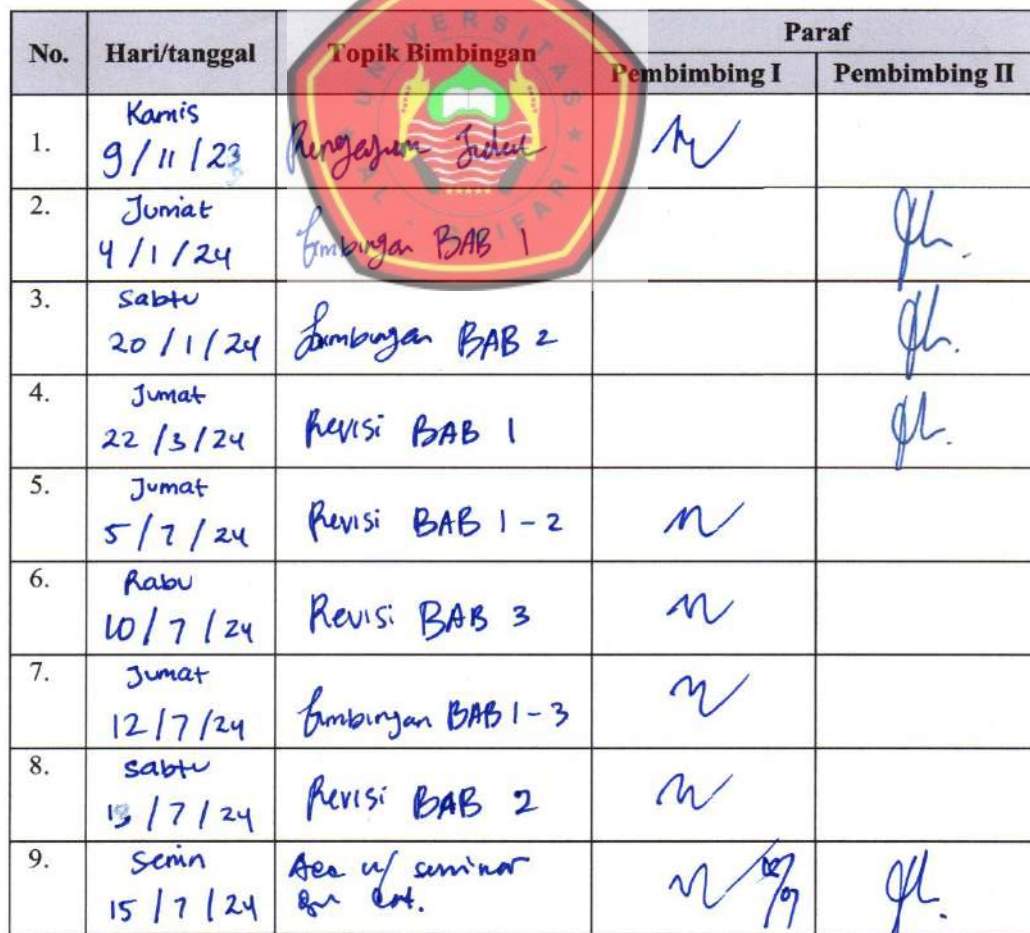 No. Hari/tanggal Topik Bimbingan Paraf
Pembimbing I Pembimbing II
UNIVERSITAS
1. Kamis
9/11/23 Pengajuan Judul
2. Jumat
4/1/24 Bimbingan BAB 1
3. Sabtu
20/1/24 Bimbingan BAB 2
4. Jumat
22/3/24 Revisi BAB 1
5. Jumat
5/7/24 Revisi BAB 1-2
6. Rabu
10/7/24 Revisi BAB 3
7. Jumat
12/7/24 Bimbingan BAB 1-3
8. Sabtu
13/7/24 Revisi BAB 2
9. Senin
15/7/24 Acc u/ seminar